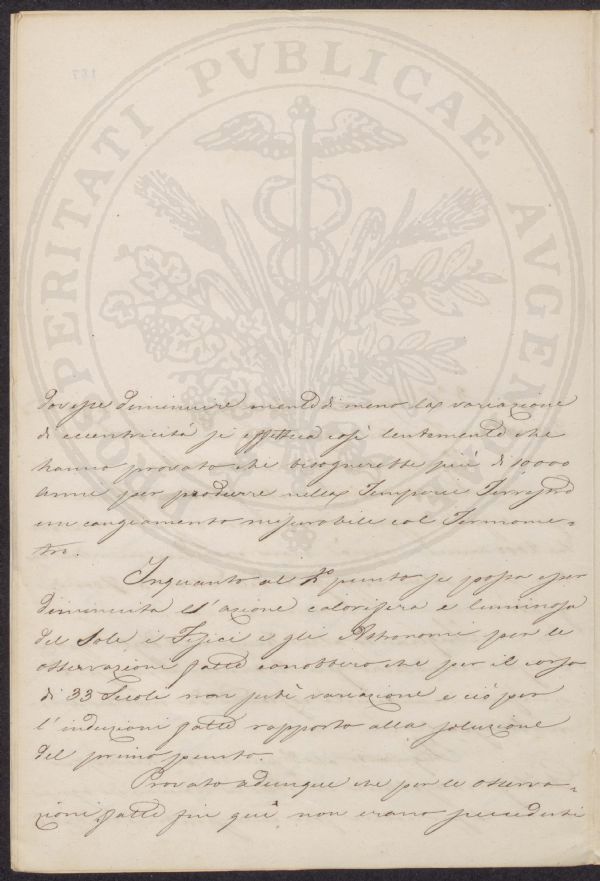 PROSPERITATI PVBLICAE AVGENDAE
dovesse diminuire mentedimeno la variazione
di eccentricità si effettua così lentamente che
hanno provato che bisognerebbe più di 10000
anni per produrre nella Temperie Terrestre
un cangiamento misurabile col Termome-
tro.
Inquanto al 2° punto se possa esser
diminuita l'azione calorifera e luminosa
del Sole, i Fisici e gli Astronomi per le
osservazione fatte conobbero che per il corso
di 33 Secoli non subì variazione e ciò per
l'induzioni fatte rapporto alla soluzione
del primo punto.
Provato adunque che per le osserva-
zioni fatte fin quì non erano succeduti